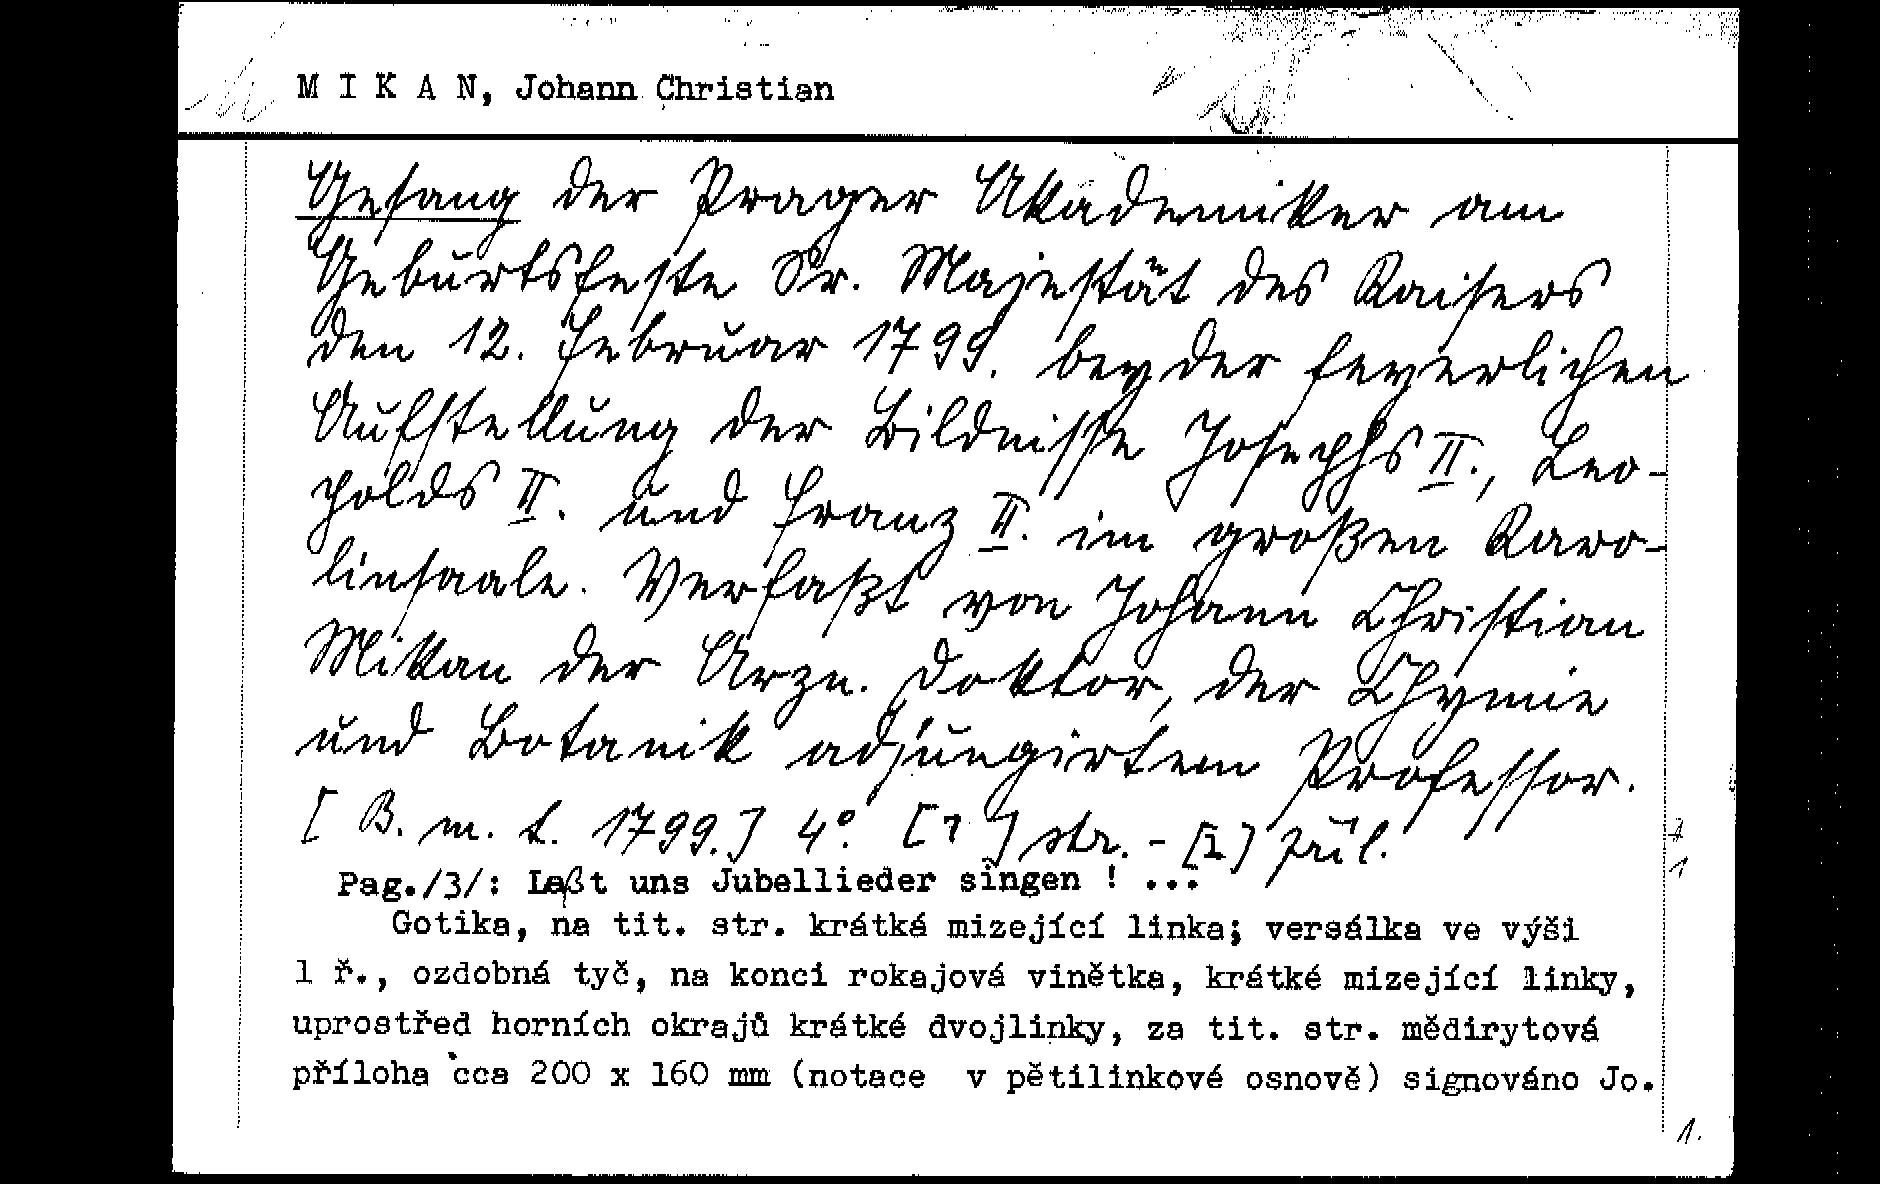 M I K A N, Johann Christian
Gesang der Prager Akademiker am
Geburtsfeste Sr. Majestät des Kaisers
den 12. Februar 1799. bey der feyerlichen
Aufstellung der Bildnisse Josephs II., Leo-
polds II. und Franz II. im großen Karo-
linsaale. Verfaßt von Johann Christian
Mikan der Arzn. Doktor, der Chymie
und Botanik adjungirtem Professor.
[ B. m. t. 1799.] 4°. [7] str. - [1] příl.
Pag./3/: Laßt uns Jubellieder singen ! ...
Gotika, na tit. str. krátká mizející linka; versálka ve výši
1 ř., ozdobná tyč, na konci rokajová vinětka, krátké mizející linky,
uprostřed horních okrajů krátké dvojlinky, za tit. str. mědirytová
příloha cca 200 x 160 mm (notace v pětilinkové osnově) signováno Jo.
1.